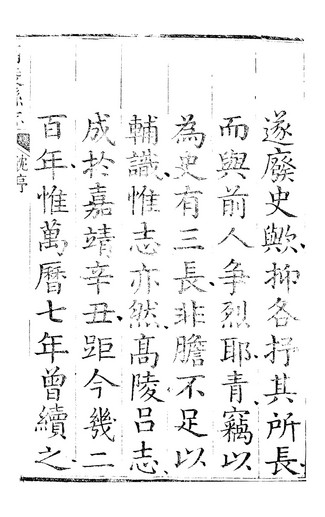 遂廢史歟抑各抒其所長
而與前人争烈耶青竊以
為史有三長非膽不足以
輔識惟志亦然髙陵吕志
成於嘉靖辛丑距今幾二
百年惟萬曆七年曾續之